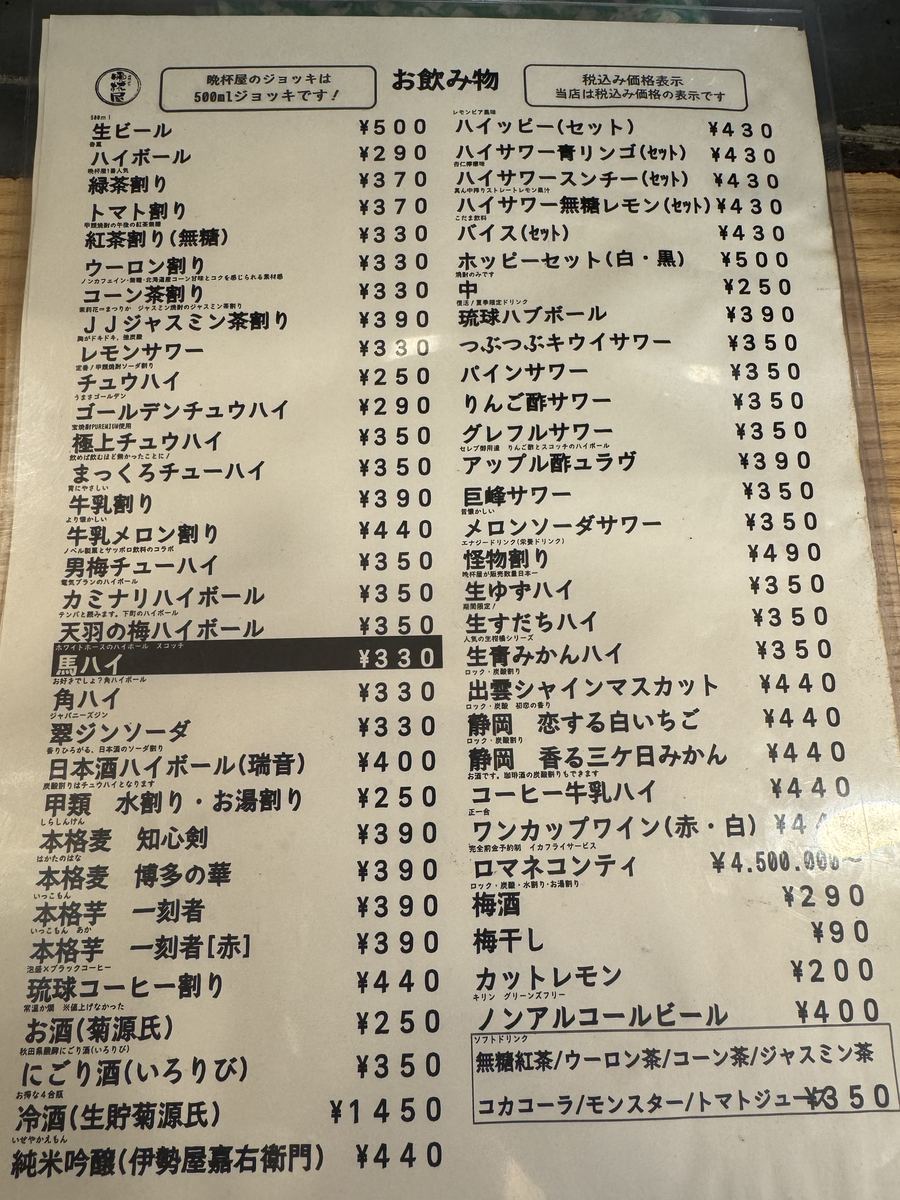 晩杯屋のジョッキは
500mlジョッキです!
お飲み物
税込み価格表示
当店は税込み価格の表示です
500ml
生ビール ¥500
ハイボール ¥290
晩杯屋1番人気
緑茶割り ¥370
トマト割り ¥370
甲類焼酎の午後の紅茶無糖
紅茶割り(無糖) ¥330
ウーロン割り ¥330
ノンカフェイン・無糖・北海道産コーン甘味とコクを感じられる素材感
コーン茶割り ¥330
茉莉花=まつりか ジャスミン焼酎のジャスミン茶割り
JJジャスミン茶割り ¥390
胸がドキドキ、強炭酸
レモンサワー ¥330
定番!甲類焼酎ソーダ割り
チュウハイ ¥250
うまさゴールデン
ゴールデンチュウハイ ¥290
宝焼酎PUREMIUM使用
極上チュウハイ ¥350
飲めば飲むほど無かったことに!
まっくろチューハイ ¥350
胃にやさしい
牛乳割り ¥390
より懐かしい
牛乳メロン割り ¥440
ノーベル製菓とサッポロ飲料のコラボ
男梅チューハイ ¥350
電気ブランのハイボール
カミナリハイボール ¥350
テンバと読みます。下町のハイボール
天羽の梅ハイボール ¥350
ホワイトホースのハイボール スコッチ
馬ハイ ¥330
お好きでしょ?角ハイボール
角ハイ ¥330
ジャパニーズジン
翠ジンソーダ ¥330
香りひろがる、日本酒のソーダ割り
日本酒ハイボール(瑞音) ¥400
炭酸割りはチュウハイとなります
甲類 水割り・お湯割り ¥250
しらしんけん
本格麦 知心剣 ¥390
はかたのはな
本格麦 博多の華 ¥390
いっこもん
本格芋 一刻者 ¥390
いっこもん あか
本格芋 一刻者[赤] ¥390
泡盛×ブラックコーヒー
琉球コーヒー割り ¥440
常温か燗 ※値上げなかった
お酒(菊源氏) ¥250
秋田県醗酵にごり酒(いろりび)
にごり酒(いろりび) ¥350
お得な4合瓶
冷酒(生貯菊源氏) ¥1450
いせやかえもん
純米吟醸(伊勢屋嘉右衛門) ¥440
レモンビア風味
ハイッピー(セット) ¥430
ハイサワー青リンゴ(セット) ¥430
杏仁檸檬味
ハイサワースンチー(セット) ¥430
真ん中搾りストレートレモン果汁
ハイサワー無糖レモン(セット) ¥430
こだま飲料
バイス(セット) ¥430
ホッピーセット(白・黒) ¥500
焼酎のみです
中 ¥250
復活!夏季限定ドリンク
琉球ハブボール ¥390
つぶつぶキウイサワー ¥350
パインサワー ¥350
りんご酢サワー ¥350
グレフルサワー ¥350
セレブ御用達 りんご酢とスコッチのハイボール
アップル酢ュラヴ ¥390
巨峰サワー ¥350
昔懐かしい
メロンソーダサワー ¥350
エナジードリンク(栄養ドリンク)
怪物割り ¥490
晩杯屋が販売数量日本一
生ゆずハイ ¥350
期間限定!
生すだちハイ ¥350
人気の生柑橘シリーズ
生青みかんハイ ¥350
ロック・炭酸割り
出雲シャインマスカット ¥440
ロック・炭酸 初恋の香り
静岡 恋する白いちご ¥440
ロック・炭酸割り
静岡 香る三ケ日みかん ¥440
お酒です。珈琲酒の炭酸割りもできます
コーヒー牛乳ハイ ¥440
正一合
ワンカップワイン(赤・白) ¥44
完全前金予約制 イカフライサービス
ロマネコンティ ¥4.500.000~
ロック・炭酸・水割り・お湯割り
梅酒 ¥290
梅干し ¥90
カットレモン ¥200
キリン グリーンズフリー
ノンアルコールビール ¥400
ソフトドリンク
無糖紅茶/ウーロン茶/コーン茶/ジャスミン茶
コカコーラ/モンスター/トマトジュース¥350